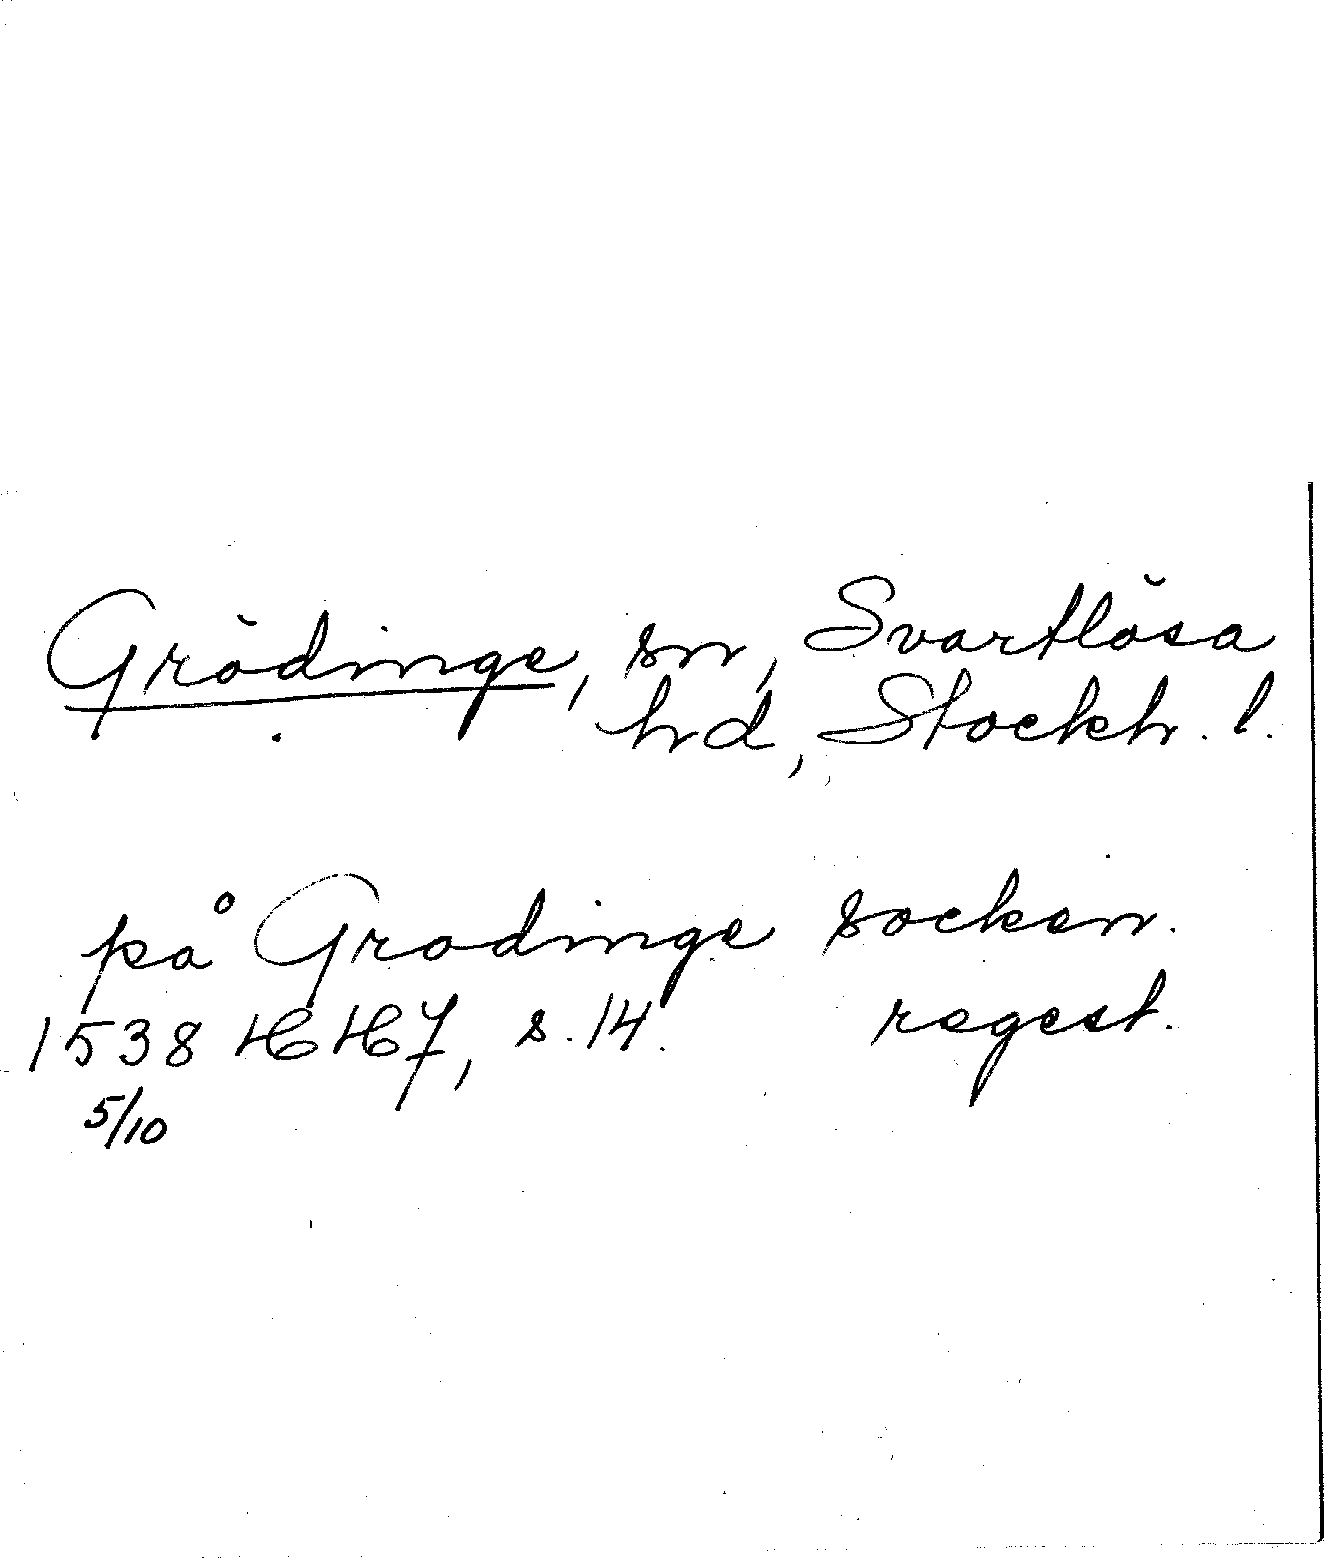 Grödinge, sn, Svartlösa
hd, Stockh. l.
på Grodinge socken.
1538 HH7, s. 14. regest.
5/10